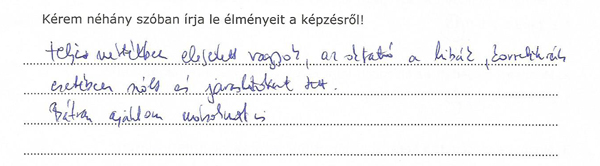 Kérem néhány szóban írja le élményeit a képzésről!
teljes mértékben elégedett vagyok, az oktató a hibák,
esetében szólt és javaslatokat tett.
Bátran ajánlom másoknak is